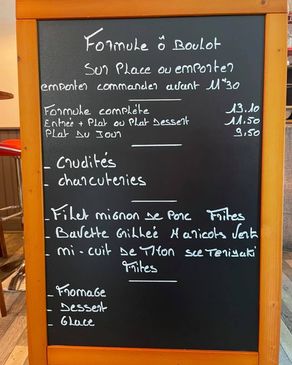 Formule ô Boulot
Sur Place ou emporter
emporter commander avant 11H30
Formule complète 13.10
Entrée + Plat ou Plat Dessert 11.50
Plat Du Jour 9,50
- Crudités
- charcuteries
- Filet mignon De Porc Frites
- Bavette Grillée Haricots Verts
- mi-cuit De Thon sce Teriyaki
Frites
- Fromage
- Dessert
- Glace